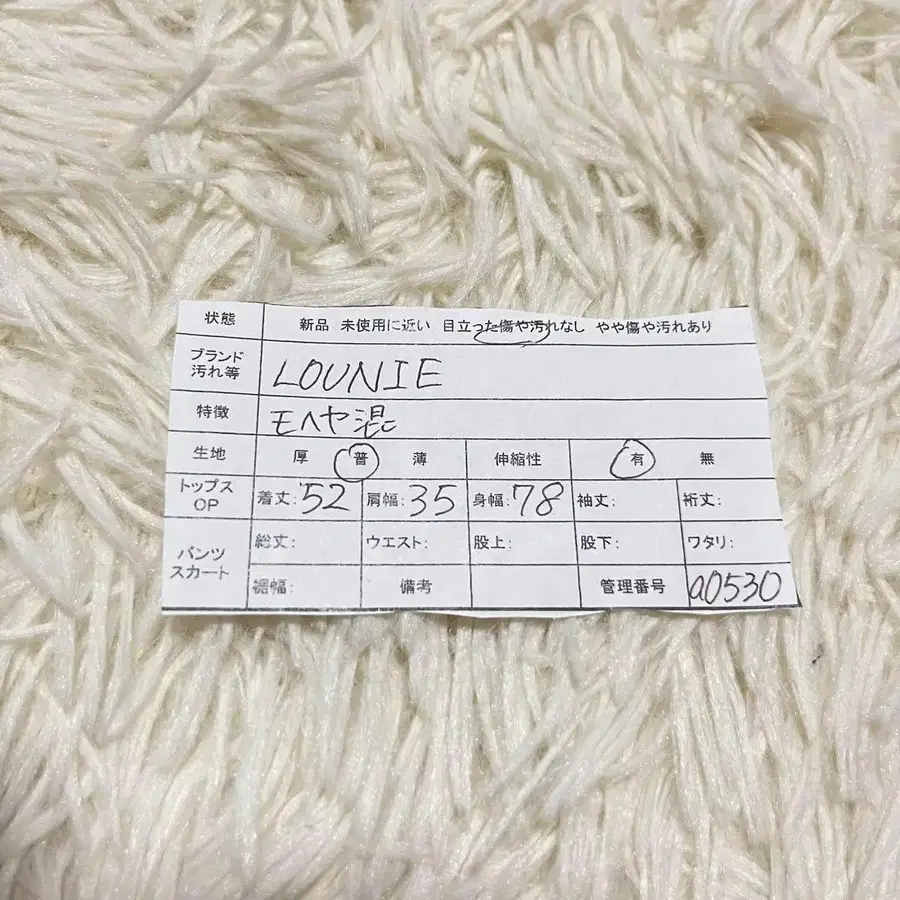 状態 新品 未使用に近い 目立った傷や汚れなし やや傷や汚れあり
ブランド
汚れ等 LOUNIE
特徴 モヘヤ混
生地 厚 普 薄 伸縮性 有 無
トップス
OP 着丈: 52 肩幅: 35 身幅: 78 袖丈: 裄丈:
パンツ
スカート 総丈: ウエスト: 股上: 股下: ワタリ:
裾幅: 備考 管理番号 a0530